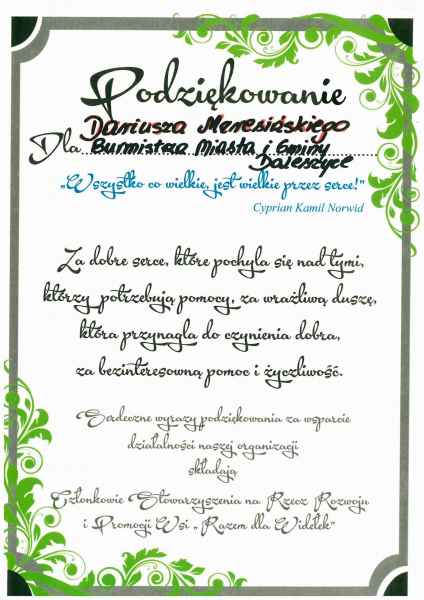 Podziękowanie
Dla Dariusza Meresińskiego
Burmistrza Miasta i Gminy
Daleszyce
„Wszystko co wielkie, jest wielkie przez serce!"
Cyprian Kamil Norwid
Za dobre serce, które pochyla się nad tymi,
którzy potrzebują pomocy, za wrażliwą duszę,
która przynagla do czynienia dobra,
za bezinteresowną pomoc i życzliwość.
Serdeczne wyrazy podziękowania za wsparcie
działalności naszej organizacji
składają
Członkowie Stowarzyszenia na Rzecz Rozwoju
i Promocji Wsi „Razem dla Widełek"